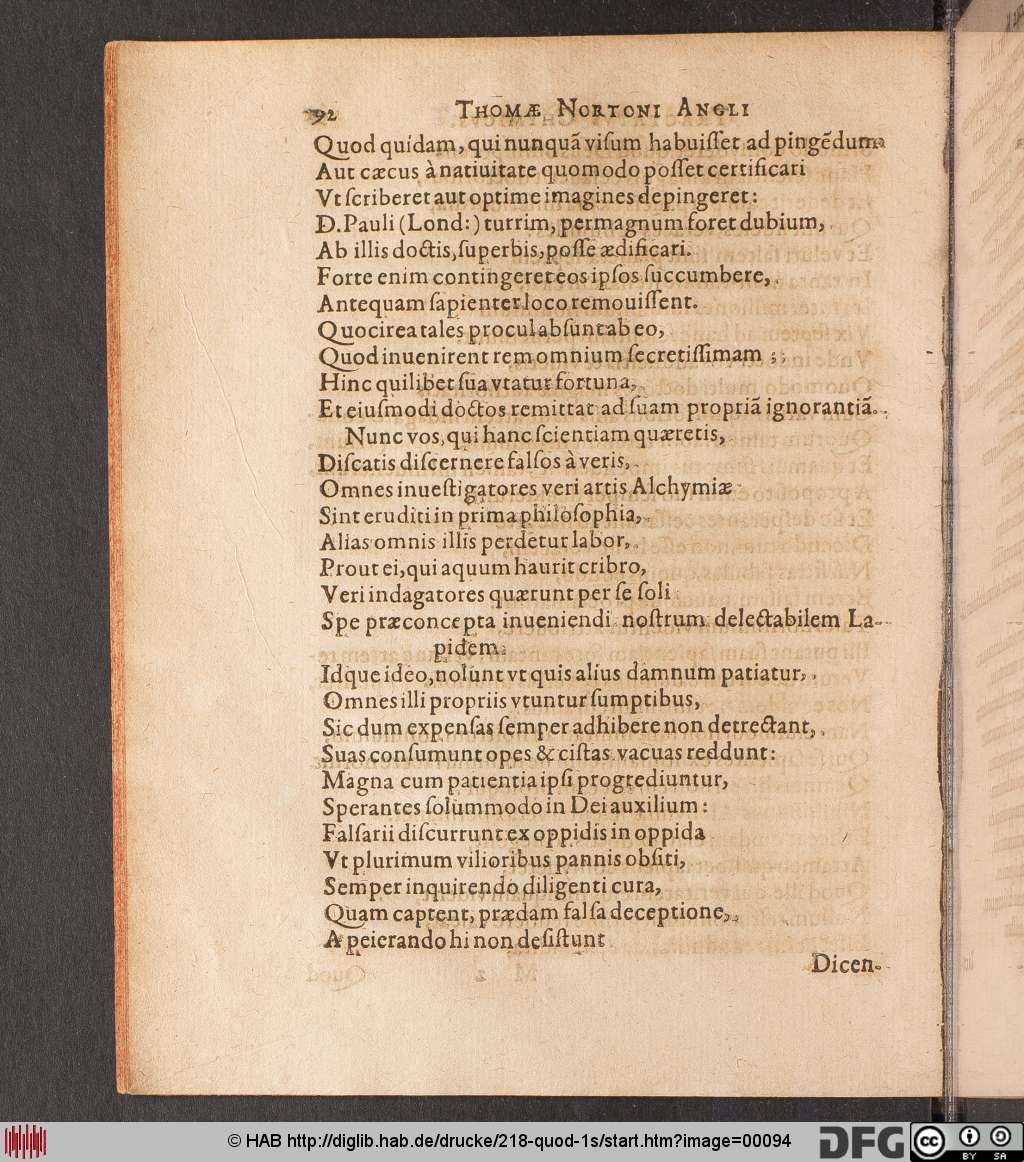 92 THOMÆ NORTONI ANGLI
Quod quidam, qui nunquã viſum habuiſſet ad pingẽdum
Aut cæcus à natiuitate quomodo poſſet certificari
Vt ſcriberet aut optime imagines depingeret:
D. Pauli (Lond:) turrim, permagnum foret dubium,
Ab illis doctis, ſuperbis, poſſe ædificari.
Forte enim contingeret eos ipſos ſuccumbere,
Antequam ſapienter loco remouiſſent.
Quocirea tales procul abſunt ab eo,
Quod inuenirent rem omnium ſecretiſſimam;
Hinc quilibet ſua vtatur fortuna,
Et eiuſmodi doctos remittat ad ſuam propriã ignorantiã.
Nunc vos, qui hanc ſcientiam quæretis,
Diſcatis diſcernere falſos à veris,
Omnes inueſtigatores veri artis Alchymiæ
Sint eruditi in prima philoſophia,
Alias omnis illis perdetur labor,
Prout ei, qui aquum haurit cribro,
Veri indagatores quærunt per ſe ſoli
Spe præconcepta inueniendi noſtrum delectabilem La-
pidem.
Idque ideo, nolunt vt quis alius damnum patiatur,
Omnes illi propriis vtuntur ſumptibus,
Sic dum expenſas ſemper adhibere non detrectant,
Suas conſumunt opes & ciſtas vacuas reddunt:
Magna cum patientia ipſi progrediuntur,
Sperantes ſolummodo in Dei auxilium:
Falſarii diſcurrunt ex oppidis in oppida
Vt plurimum vilioribus pannis obſiti,
Semper inquirendo diligenti cura,
Quam captent, prædam falſa deceptione,
A peierando hi non deſiſtunt
Dicen-
© HAB http://diglib.hab.de/drucke/218-quod-1s/start.htm?image=00094
DFG
cc
BY SA